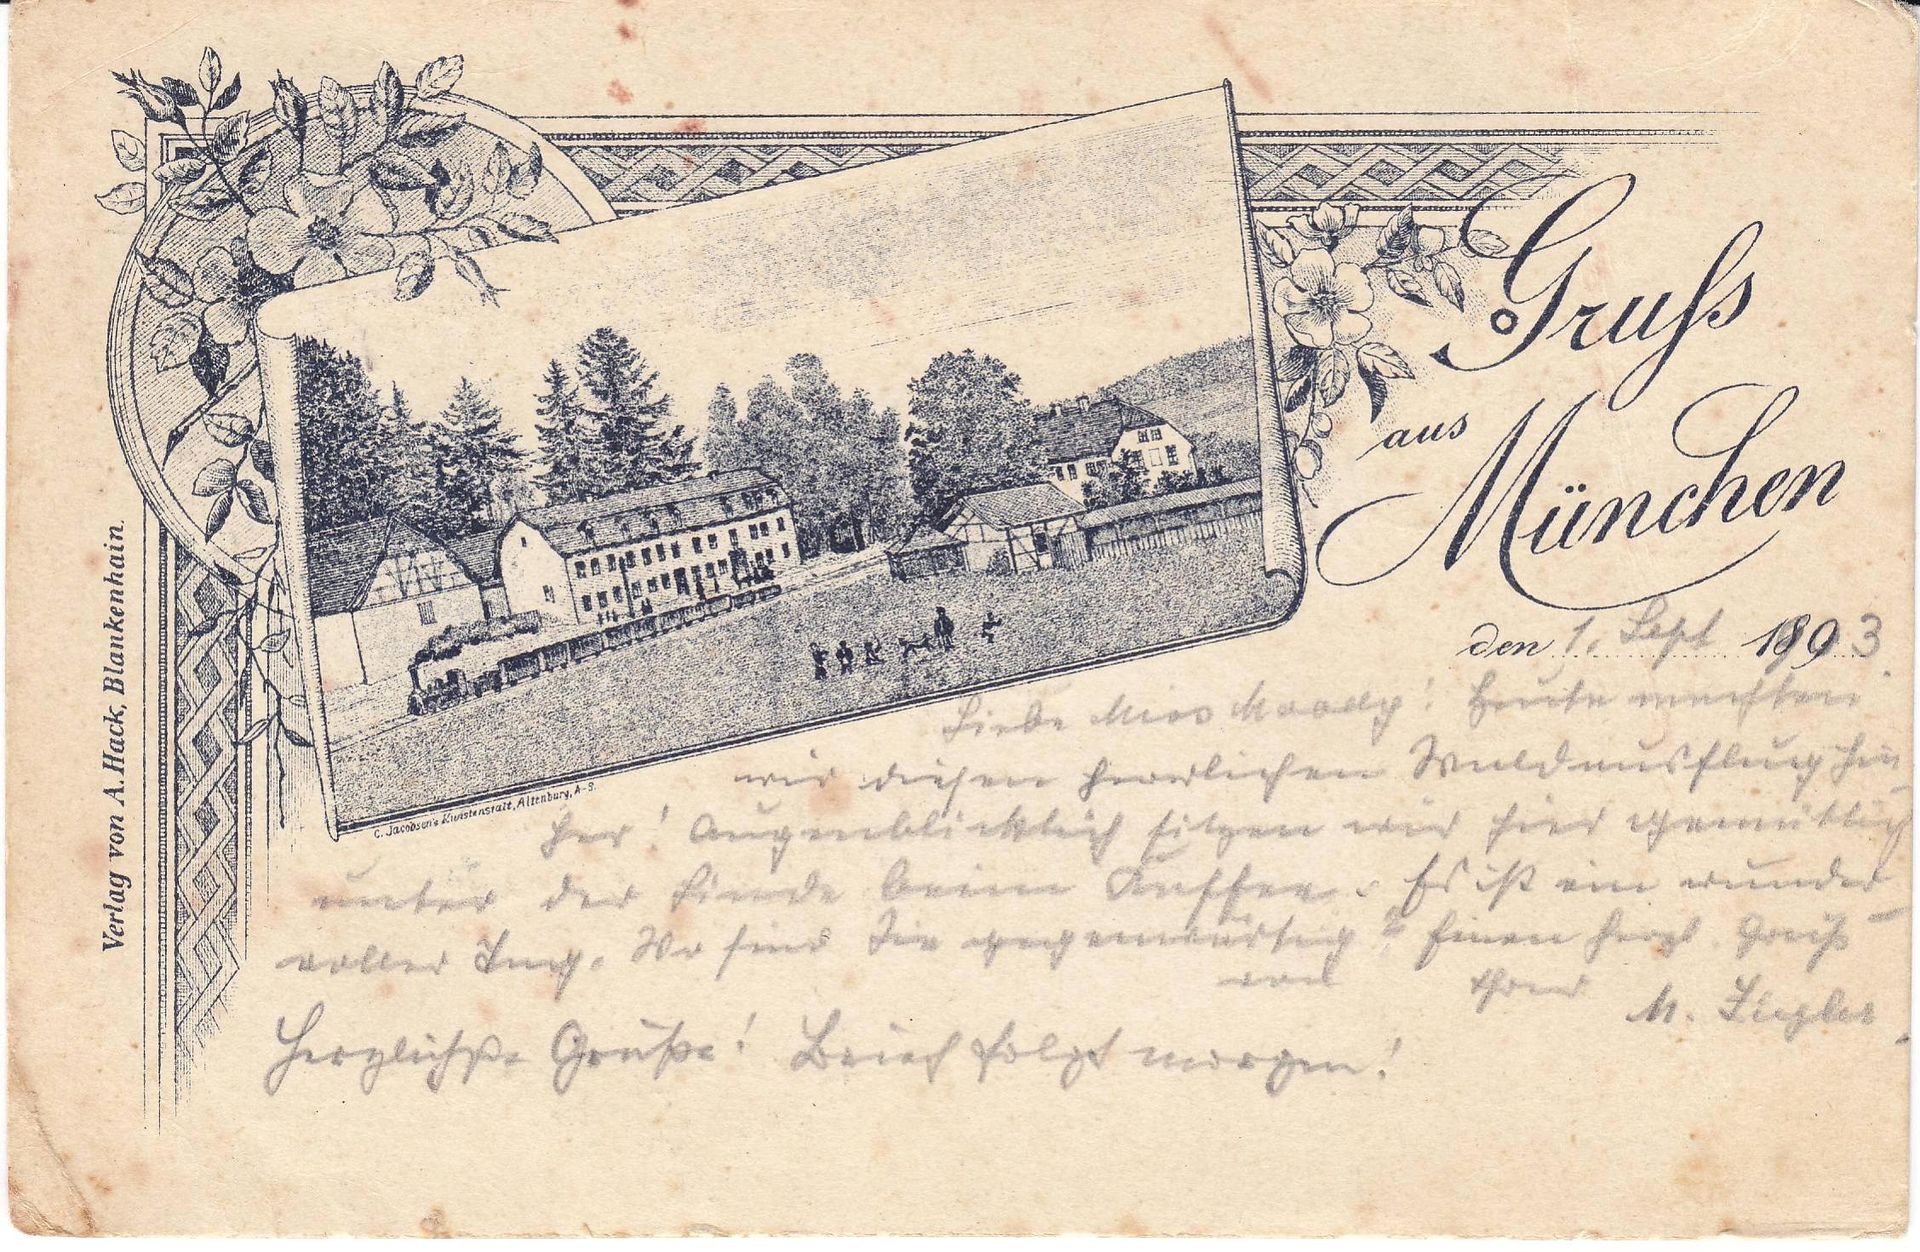 Gruss
aus
München
den 1. Sept 1893.
Liebe Miss Moody! Heute machten
wir diesen herrlichen Waldausflug hie-
her! Augenblicklich sitzen wir hier gemütlich
unter der Linde beim Kaffee. Es ist ein wunder
voller Tag. Wo sind Sie gegenwärtig? Einen herzl. Gruß
von Ihrer M. Ziegler
Herzlichste Grüße! Brief folgt morgen!
C. Jacobsen's Kunstanstalt, Altenburg, A-S.
Verlag von A. Hack, Blankenhain.